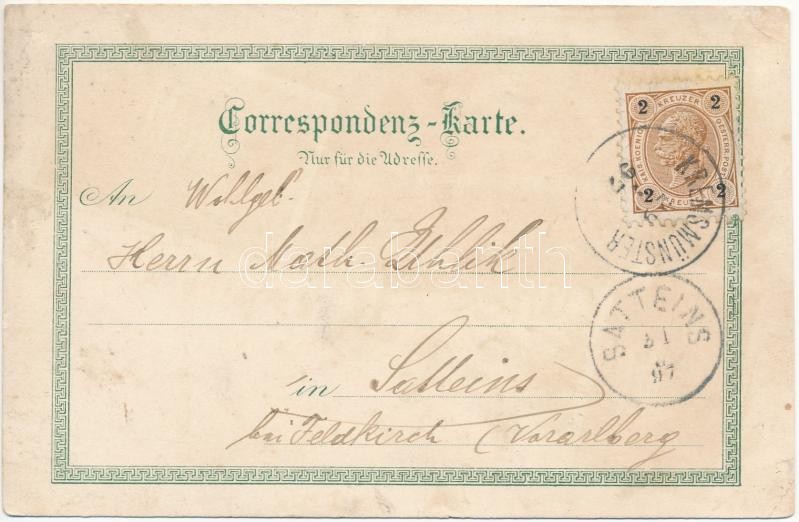 Correspondenz-Karte.
Nur für die Adresse.
An Wohlgeb.
Herrn Math. Uhlik
in Satteins
bei Feldkirch (Vorarlberg
2 KREUZER 2
KAIS. KOENIGL. OESTERR. POST
2 KREUZER 2
KREMSMÜNSTER
SATTEINS
97
darabanth